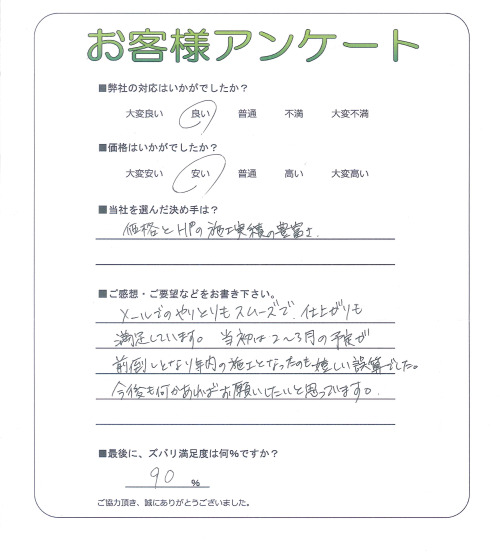 お客様アンケート
■弊社の対応はいかがでしたか？
大変良い　良い　普通　不満　大変不満
■価格はいかがでしたか？
大変安い　安い　普通　高い　大変高い
■当社を選んだ決め手は？
価格とHPの施工実績の豊富さ.
■ご感想・ご要望などをお書き下さい。
メールでのやりとりもスムーズで、仕上がりも
満足しています。 当初は2〜3月の予定が
前倒しとなり年内の施工となったのも嬉しい誤算でした。
今後も何かあればお願いしたいと思っています。
■最後に、ズバリ満足度は何%ですか？
90 %
ご協力頂き、誠にありがとうございました。